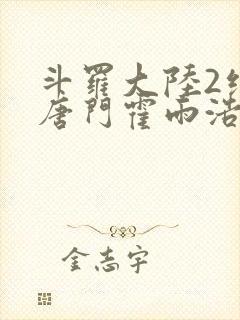 斗羅大陸2
唐門霍雨浩
金志宇